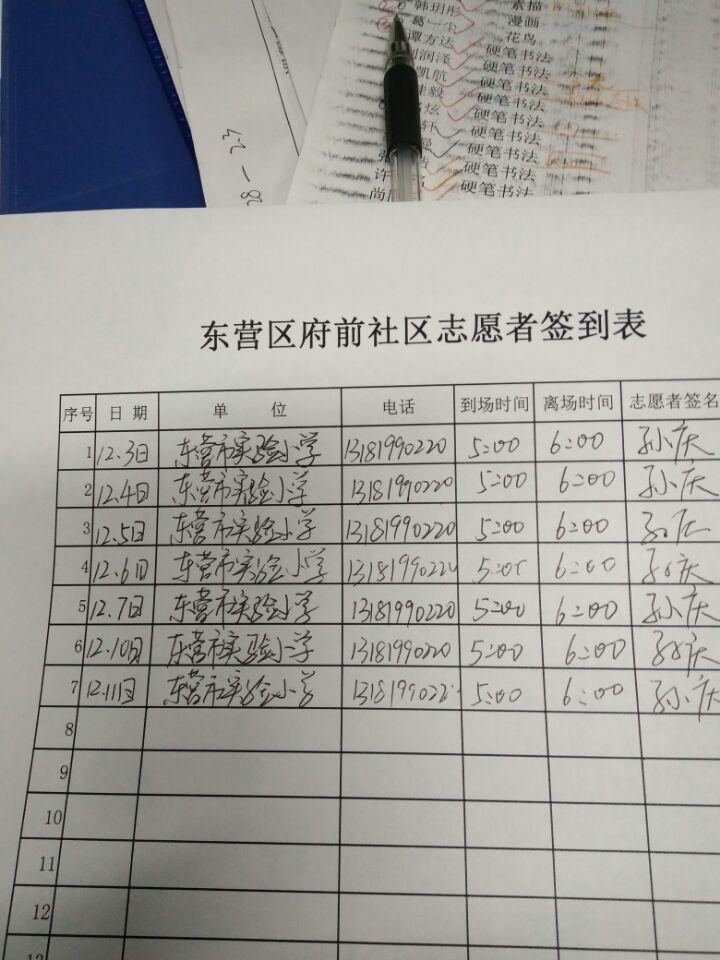 韩玥彤 素描
葛一尘 漫画
谭方达 花鸟
润泽 硬笔书法
凯航 硬笔书法
毅 硬笔书法
炫 硬笔书法
轩 硬笔书法
硬笔书法
张 硬笔书法
许 硬笔书法
尚
28-2.4
东营区府前社区志愿者签到表
序号 日期 单位 电话 到场时间 离场时间 志愿者签名
1 12.3日 东营市实验小学 13181990220 5:00 6:00 孙庆
2 12.4日 东营市实验小学 13181990220 5:00 6:00 孙庆
3 12.5日 东营市实验小学 13181990220 5:00 6:00 孙庆
4 12.6日 东营市实验小学 13181990220 5:00 6:00 孙庆
5 12.7日 东营市实验小学 13181990220 5:00 6:00 孙庆
6 12.10日 东营市实验小学 13181990220 5:00 6:00 孙庆
7 12.11日 东营市实验小学 1318199022 5:00 6:00 孙庆
8
9
10
11
12
13